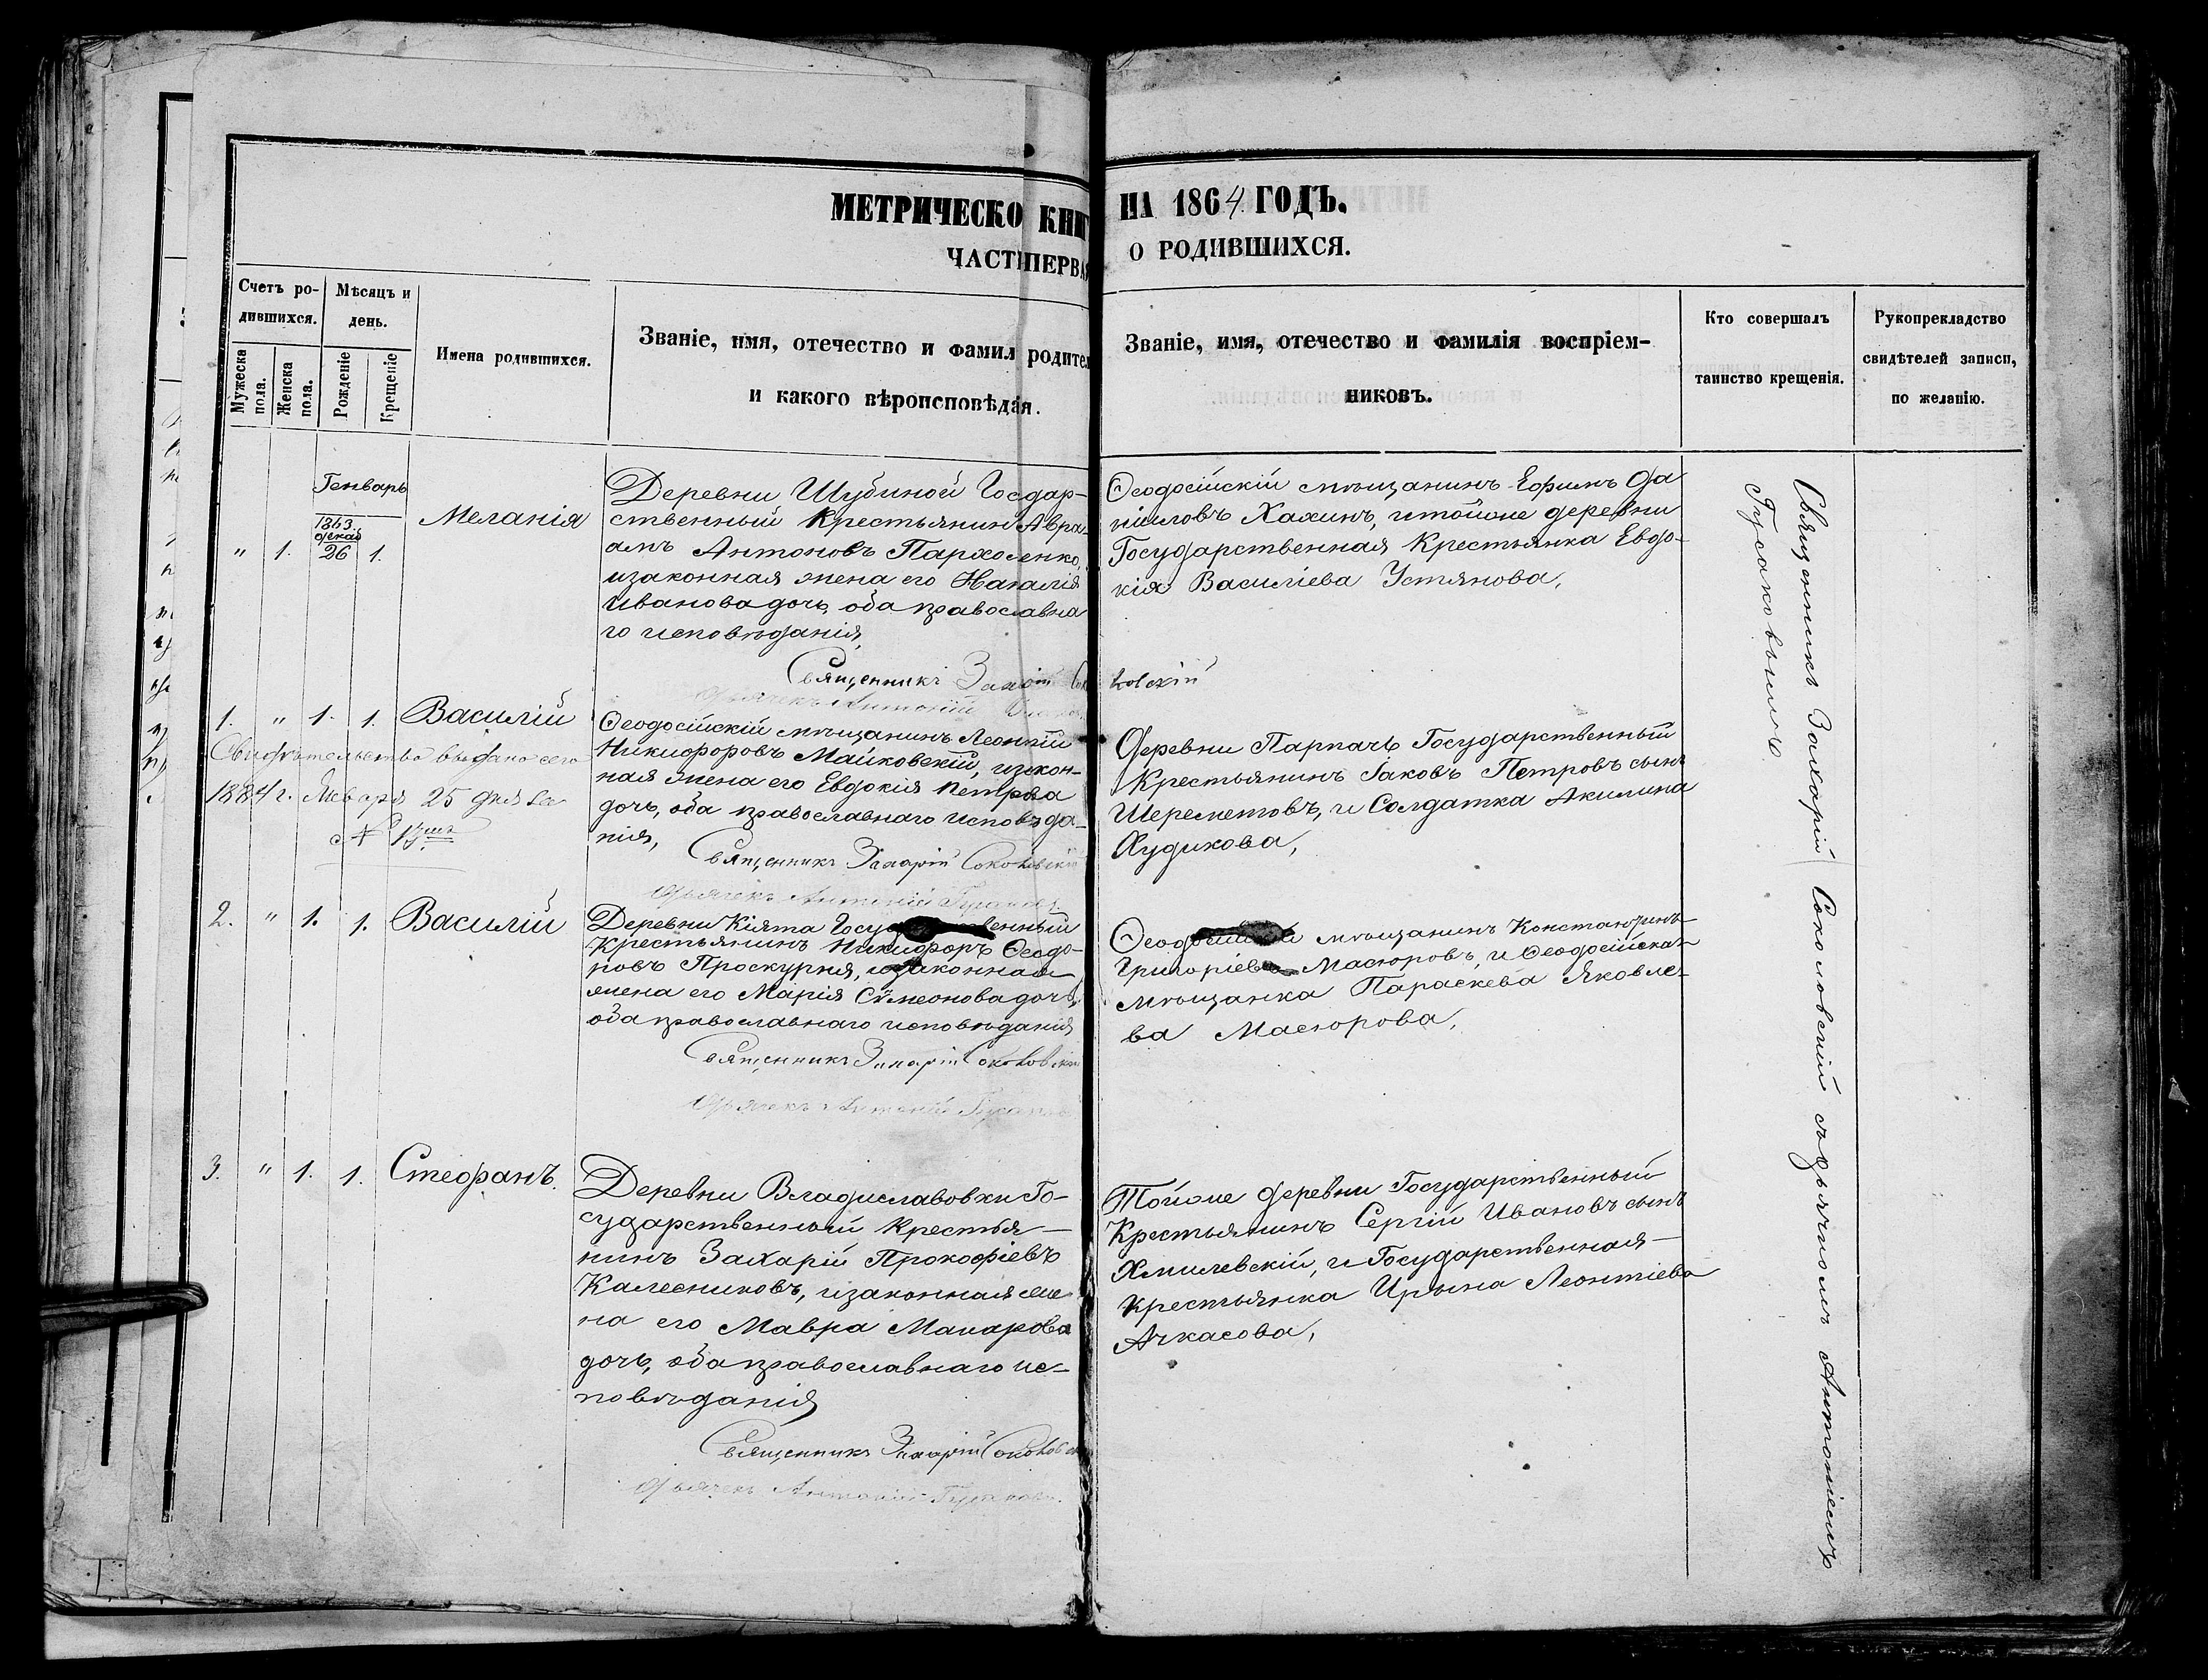 МЕТРИЧЕСКО КНИГ НА 1864 ГОДЪ.
ЧАСТЬ ПЕРВАЯ О РОДИВШИХСЯ.
Счетъ ро-
дившихся.
Мужеска пола.
Женска пола.
Мѣсяцъ и
день.
Рожденіе
Крещеніе
Имена родившихся.
Званіе, имя, отечество и фамил родител
и какого вѣроисповѣданія.
Званіе, имя, отечество и фамилія воспріем-
никовъ.
Кто совершалъ
таинство крещенія.
Рукоприкладство
свидѣтелей записи,
по желанію.
Генварь
1863.
декаб
" 1. 26 1.
Меланія
Деревни Шубиной Госдар-
ственный Крестьянин Авра-
амъ Антоновъ Пархоменко,
изаконная жена его Наталія
Иванова дочь, оба православна
го исповѣданія,
Священникъ Захарій Соколовскій
Дьячекъ Антоній
Ѳеодосійскій мѣщанинъ Ефимъ Да
ниловъ Хахинъ, итойже деревни
Государственная Крестьянка Евдо-
кія Василіева Устянова,
1. " 1. 1. Василій
Свидѣтельство выдано сего
1884 г. Января 25 дня за
№ 1
Ѳеодосійскій мѣщанинъ Леонтій
Никифоровъ Майковскій, изкон-
ная жена его Евдокія Петрова
дочь, оба православнаго исповѣда-
нія,
Священникъ Захарій Соколовскій
Дьячекъ Антоній Гусаковъ
Деревни Парпачь Государственный
Крестьянинъ Іаковъ Петровъ сынъ
Шереметовъ, и Солдатка Акилина
Худикова,
2. " 1. 1. Василій
Деревни Кіята Государственный
Крестьянинъ Никифоръ Ѳеодо-
ровъ Проскурня, изаконная
жена его Марія Сѵмеонова дочь,
оба православнаго исповѣданія
Священникъ Захарій Соколовскій
Дьячекъ Антоній Гусаковъ
Ѳеодосійскій мѣщанинъ Константинъ
Григоріевъ Масюровъ, и Ѳеодосійская
мѣщанка Параскева Яковле-
ва Масюрова,
3. " 1. 1. Стефанъ.
Деревни Владиславовки Го-
сударственный Крестья-
нинъ Захарій Прокофіевъ
Калесниковъ, изаконная же
на его Мавра Макарова
дочь, оба православнаго ис-
повѣданія
Священникъ Захарій Соколовск
Дьячекъ Антоній Гусаковъ.
Тойже деревни Государственный
Крестьянинъ Сергій Ивановъ сынъ
Хмилевскій, и Государственная
Крестьянка Ирына Леонтіева
Ачкасова,
Священникъ Захарій Соколовскій съ дьячкомъ Антоніемъ
Гусаковымъ